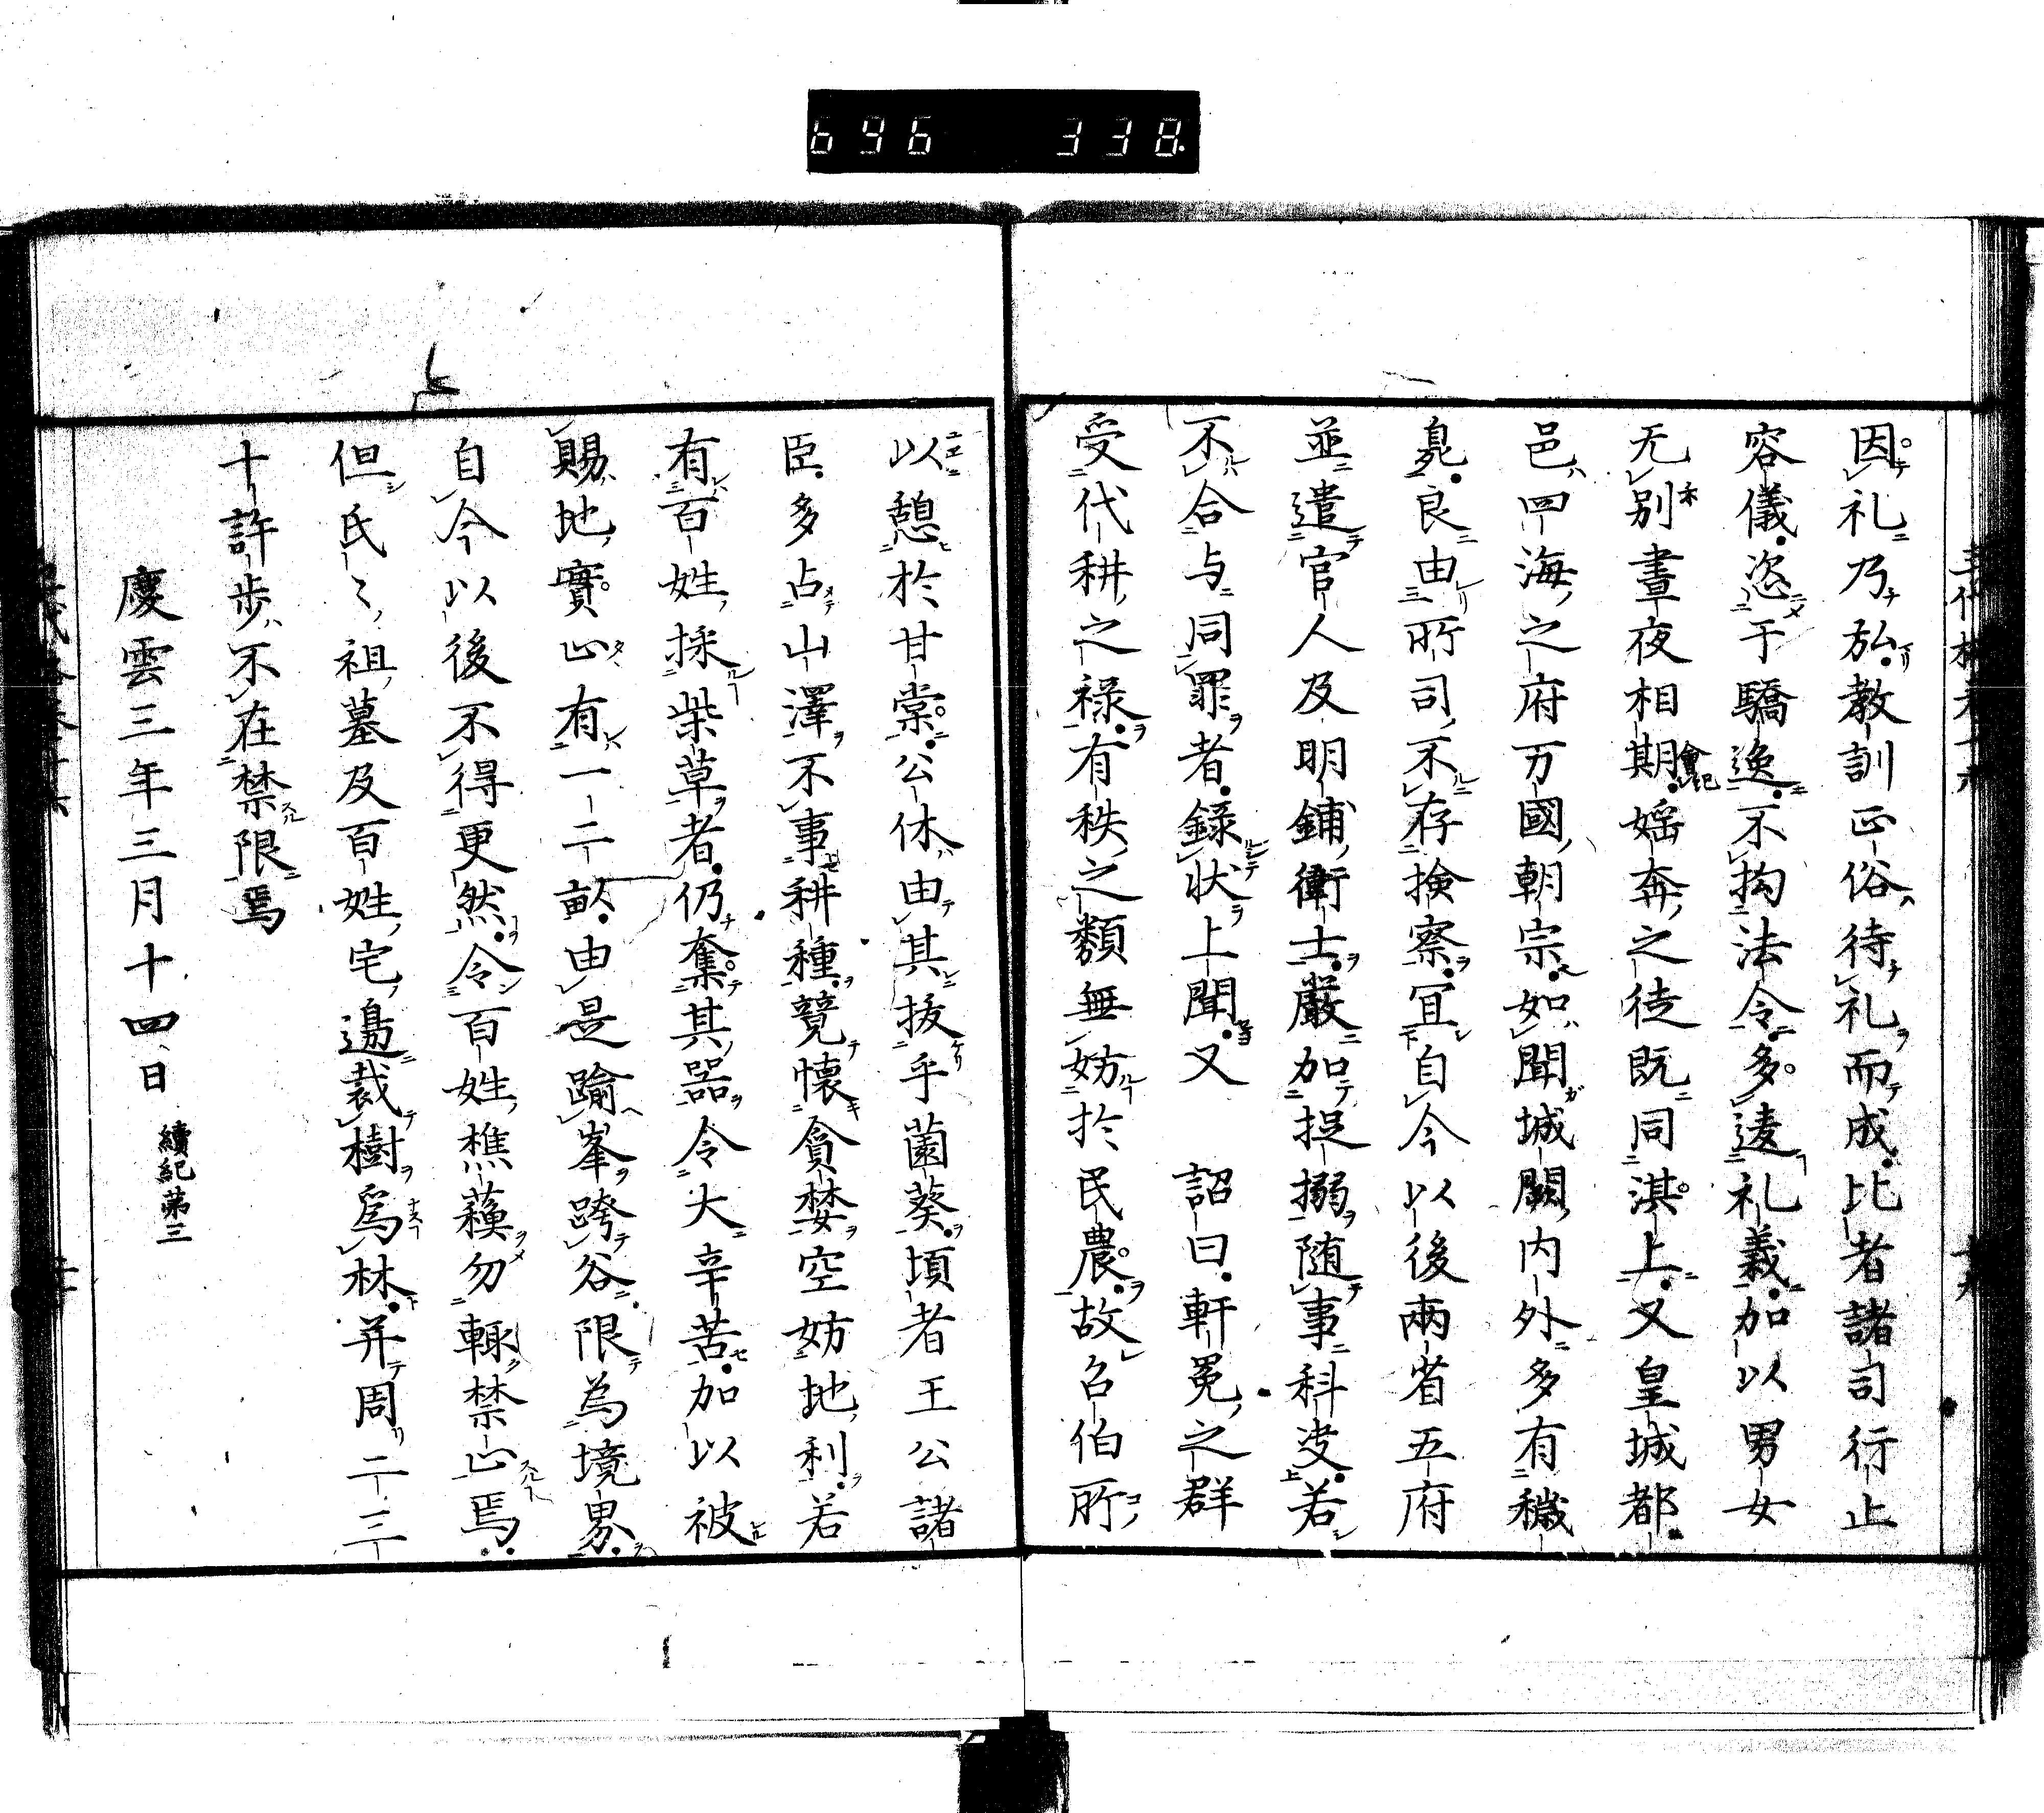 696 338
因礼乃放教訓正俗待礼而成比者諸司行止
容儀恣于驕逸不拘法令多逺礼義加以男女
无别晝夜相期會記婬奔之徒既同淇上又皇城都
邑四海之府万國朝宗如聞城闕内外多有穢
臰良由所司不存撿察宜自今以後兩省五府
並遣官人及明鋪衛士嚴加捉搦随事科决若
不合与同罪者錄状上聞又　詔曰軒冕之群
受代耕之禄有秩之類無妨於民農故召伯所
以憩於甘棠公休由其拔乎菌葵頃者王公諸
臣多占山澤不事耕種競懷貪婪空妨地利若
有百姓採柴草者仍奪其器令大辛苦加以被
賜地實止有一二畝由是踰峯跨谷限為境界
自今以後不得更然令百姓樵蘓勿輙禁止焉
但氏〻祖墓及百姓宅邉裁樹爲林并周二三
十許歩不在禁限焉
慶雲三年三月十四日 續紀第三